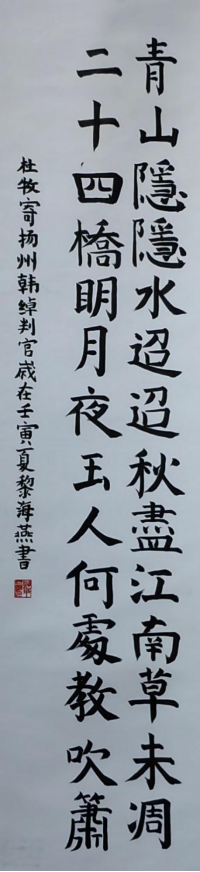 青山隱隱水迢迢秋盡江南草未凋
二十四橋明月夜玉人何處教吹簫
杜牧寄扬州韩绰判官歲在壬寅夏黎海燕書